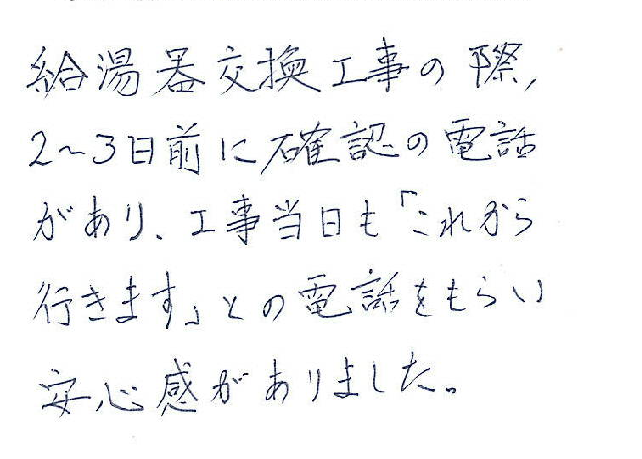 給湯器交換工事の際、
2～3日前に確認の電話
があり、工事当日も「これから
行きます」との電話をもらい
安心感がありました。